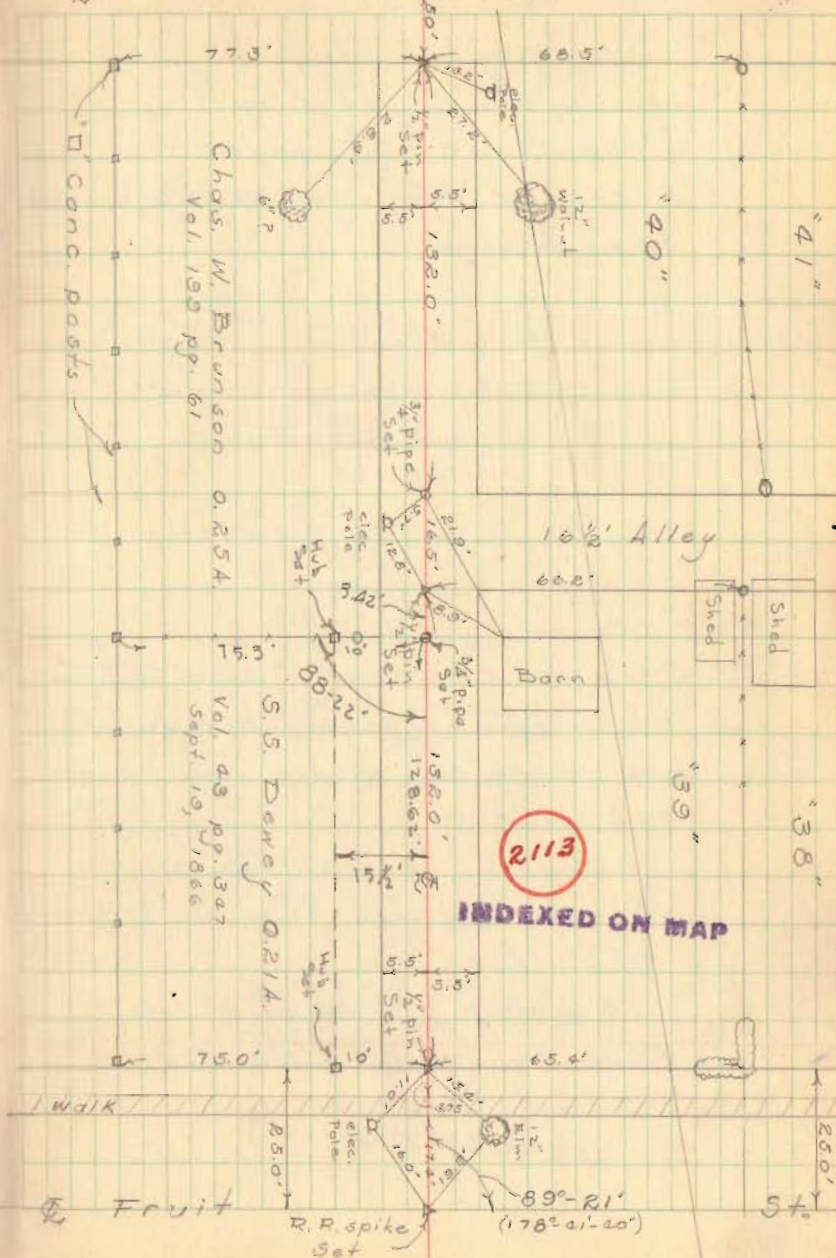 50'
77.3'
68.5'
13.2'
elec.
Pole
27.2'
1/2" pin
Set
6"?
12"
Walnut
5.5'
5.5'
132.0'
"40"
"41"
"□" Conc. posts
Chas. W. Brunson 0.25A.
Vol. 199 pg. 61
3/4" pipe
Set
elec.
Pole
12.8'
16.5'
21.9'
16 1/2' Alley
66.2'
Hub
Set
3.42'
8.9'
1/2" pin
Set
3/4" pipe
Set
75.3'
10'
88-22'
Barn
Shed
Shed
S. S. Dewey 0.21A.
Vol. 43 pg. 347
Sept. 19, 1866
132.0'
128.62'
15 1/2'
"39"
"38"
2113
INDEXED ON MAP
Hub
Set
5.5'
5.5'
1/2" pin
Set
75.0'
10'
65.4'
Walk
25.0'
11.0'
15.4'
3.75
elec.
Pole
12"
Elm
16.0'
17.4'
25.0'
89°-21'
(178°-41'-40")
℄ Fruit St.
R.R. spike
Set